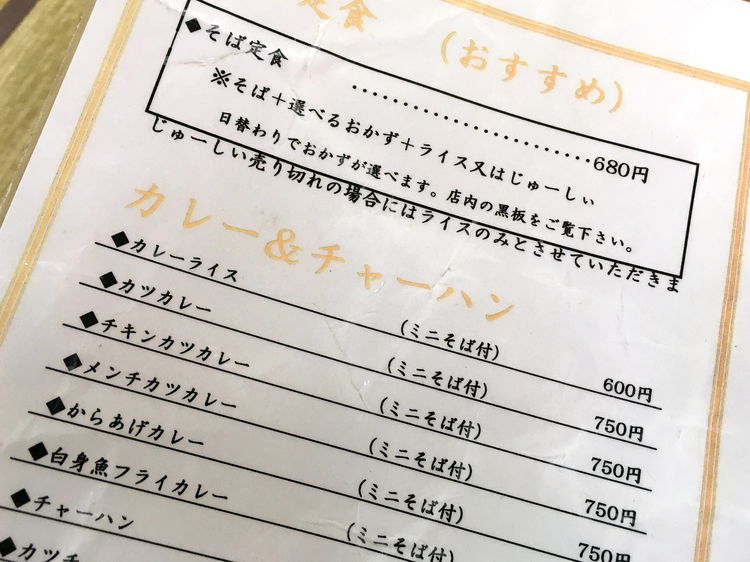 定食 (おすすめ)
◆そば定食 ‥‥‥‥‥‥‥‥‥‥680円
※そば＋選べるおかず＋ライス又はじゅーしぃ
日替わりでおかずが選べます。店内の黒板をご覧下さい。
じゅーしい売り切れの場合にはライスのみとさせていただきま
カレー&チャーハン
◆カレーライス (ミニそば付) 600円
◆カツカレー (ミニそば付) 750円
◆チキンカツカレー (ミニそば付) 750円
◆メンチカツカレー (ミニそば付) 750円
◆からあげカレー (ミニそば付) 750円
◆白身魚フライカレー (ミニそば付)
◆チャーハン
◆カツチ